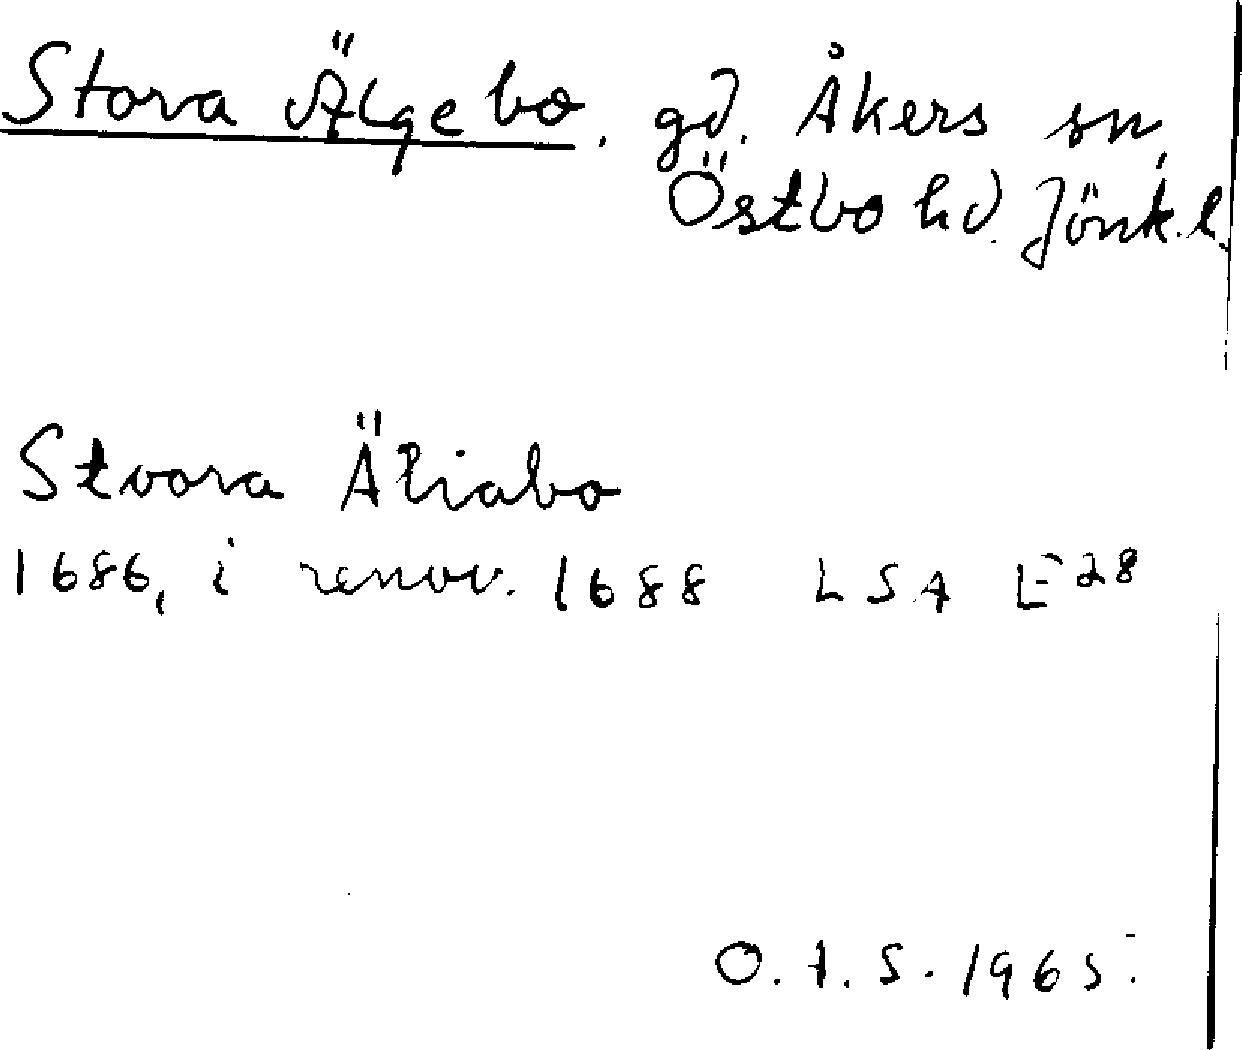 Stora Älgebo. gd. Åkers sn,
Östbo hd. Jönk. l.
Stvora Äliabo
1686, i renov. 1688 LSA E28
O. A. S. 1965.